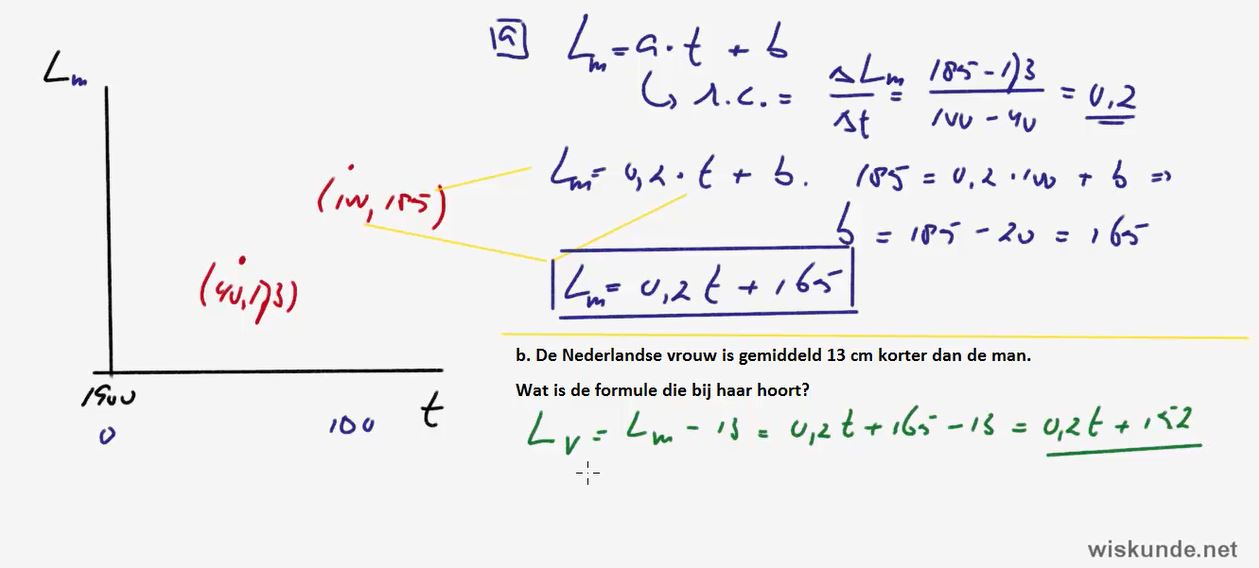 Lm
(100, 185)
(40, 173)
1900
0
100
t
1a
Lm = a · t + b
↳ r.c. = ΔLm/Δt = (185 - 173)/(100 - 40) = 0,2
Lm = 0,2 · t + b. 185 = 0,2 · 100 + b ⇒
b = 185 - 20 = 165
Lm = 0,2 t + 165
b. De Nederlandse vrouw is gemiddeld 13 cm korter dan de man.
Wat is de formule die bij haar hoort?
Lv = Lm - 13 = 0,2 t + 165 - 13 = 0,2 t + 152
wiskunde.net